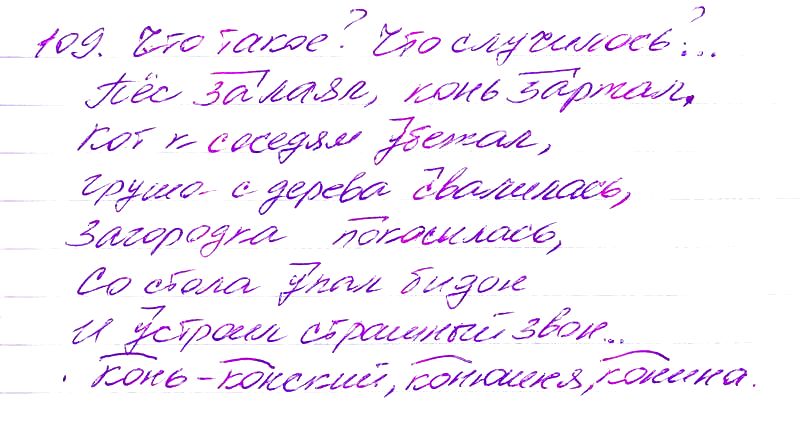 109. Что такое? Что случилось?...
Пёс залаял, конь заржал,
Кот к соседям убежал,
Груша с дерева свалилась,
Загородка покосилась,
Со стола упал бидон
И устроил страшный звон...
Конь - конский, конюшня, конина.